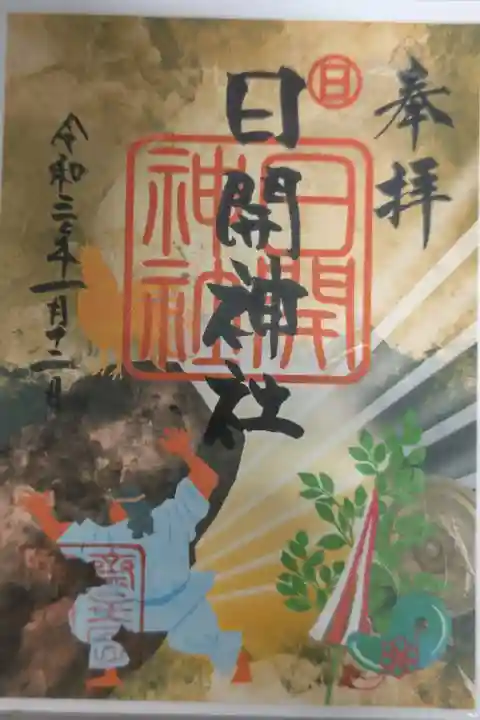 奉拝
日
日開神社
日開神社
令和三年一月十二日